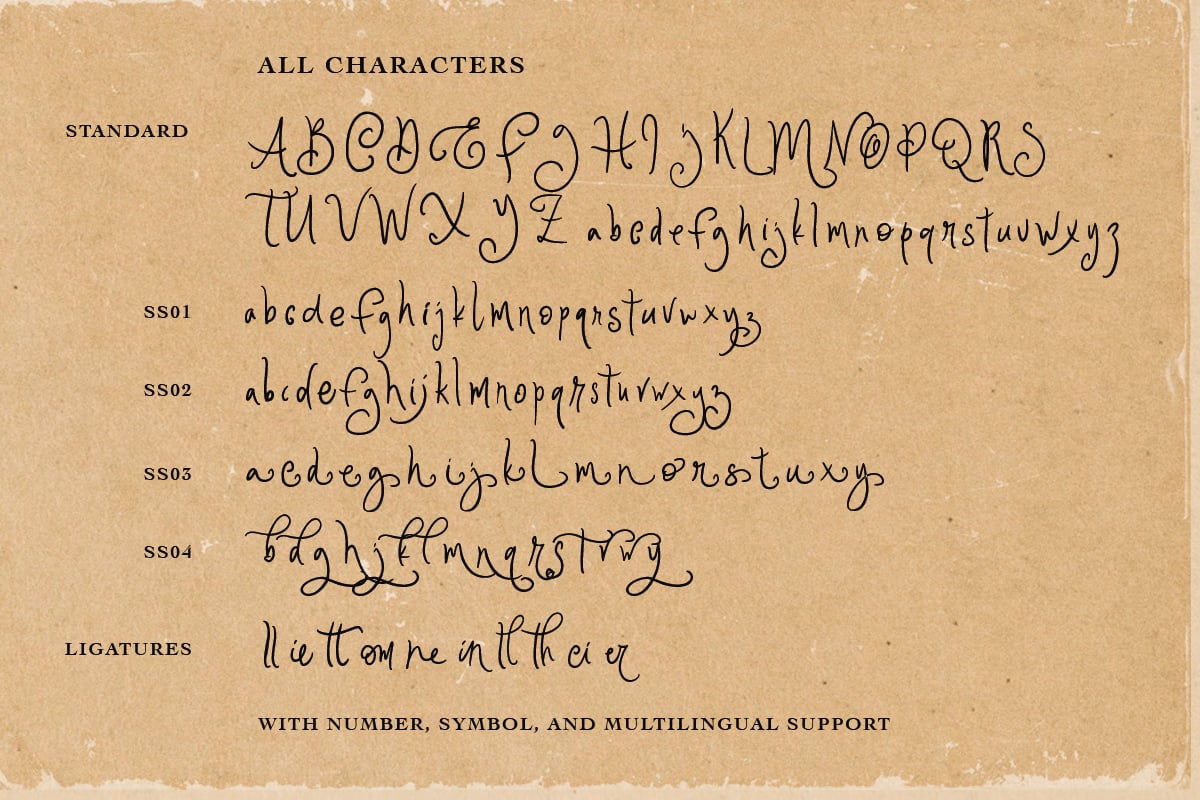 ALL CHARACTERS
STANDARD ABCDEFGHIJKLMNOPQRS
TUVWXYZ abcdefghijklmnopqrstuvwxyz
SS01 abcdefghijklmnopqrstuvwxyz
SS02 abcdefghijklmnopqrstuvwxyz
SS03 acdeghijklmnorstuxy
SS04 bdghjklmnqrstvwy
LIGATURES ll ie tt om ne in tl th ci er
WITH NUMBER, SYMBOL, AND MULTILINGUAL SUPPORT